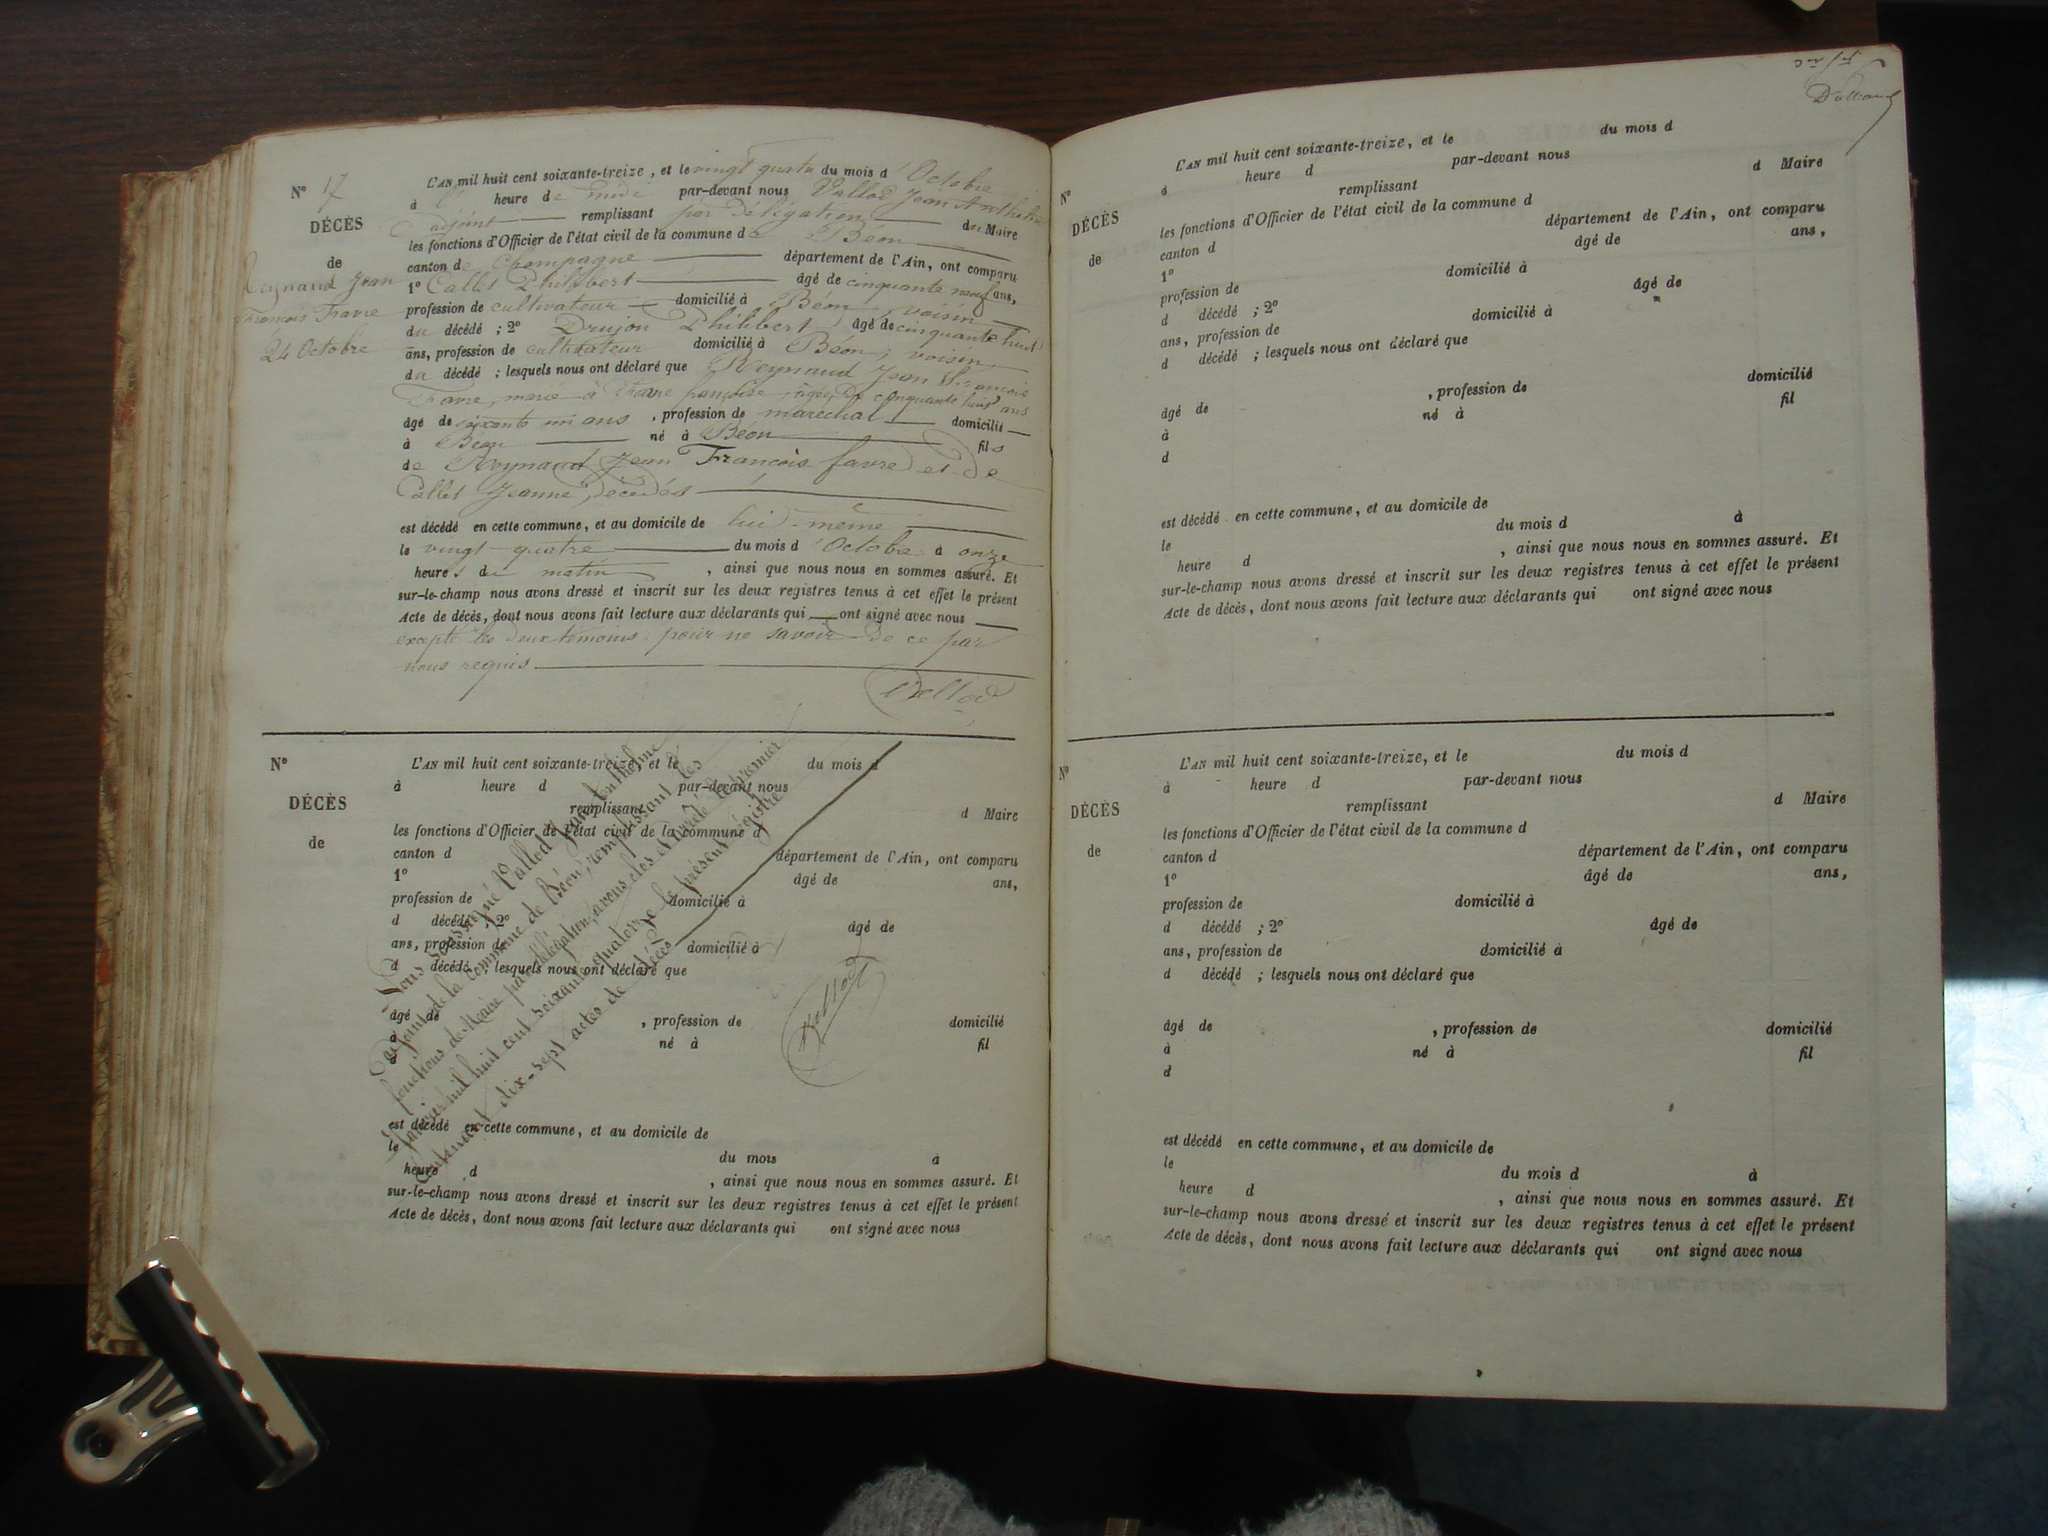 N° 17
DÉCÈS
de
Reynaud Jean
François Favre
24 Octobre
L'AN mil huit cent soixante-treize, et le vingt quatre du mois d'Octobre
à heure de midi par-devant nous Vallod Jean Anthelme
adjoint remplissant par délégation du Maire
les fonctions d'Officier de l'état civil de la commune de Béon
canton de Champagne département de l'Ain, ont comparu
1° Callet Philibert âgé de cinquante neuf ans,
profession de cultivateur domicilié à Béon, voisin
du décédé ; 2° Drujon Philibert âgé de cinquante huit
ans, profession de cultivateur domicilié à Béon, voisin
du décédé ; lesquels nous ont déclaré que Reynaud Jean François
Favre, marié à Favre françoise, âgée de cinquante huit ans
âgé de soixante un ans, profession de maréchal domicilié
à Béon né à Béon fils
de Reynaud Jean François favre et de
Callet Jeanne, décédés
est décédé en cette commune, et au domicile de lui-même
le vingt-quatre du mois d'Octobre à onze
heures du matin, ainsi que nous nous en sommes assuré. Et
sur-le-champ nous avons dressé et inscrit sur les deux registres tenus à cet effet le présent
Acte de décès, dont nous avons fait lecture aux déclarants qui ont signé avec nous
excepté les deux témoins pour ne savoir de ce par
nous requis
Vallod
N°
DÉCÈS
de
L'AN mil huit cent soixante-treize, et le du mois d
à heure d par-devant nous
remplissant d Maire
les fonctions d'Officier de l'état civil de la commune d
canton d département de l'Ain, ont comparu
1° âgé de ans,
profession de domicilié à
d décédé ; 2° âgé de
ans, profession de domicilié à
d décédé ; lesquels nous ont déclaré que
âgé de , profession de domicilié
à né à fil
d
est décédé en cette commune, et au domicile de
le du mois à
heure d , ainsi que nous nous en sommes assuré. Et
sur-le-champ nous avons dressé et inscrit sur les deux registres tenus à cet effet le présent
Acte de décès, dont nous avons fait lecture aux déclarants qui ont signé avec nous
Nous soussigné Vallod Jean Anthelme
adjoint de la commune de Béon, remplissant les
fonctions de Maire par délégation, avons clos et arrêté le premier
janvier mil huit cent soixante quatorze le présent registre
contenant dix-sept actes de décès
Vallod
N°
DÉCÈS
de
L'AN mil huit cent soixante-treize, et le du mois d
à heure d par-devant nous
remplissant d Maire
les fonctions d'Officier de l'état civil de la commune d
canton d département de l'Ain, ont comparu
1° âgé de ans,
profession de domicilié à
d décédé ; 2° âgé de
ans, profession de domicilié à
d décédé ; lesquels nous ont déclaré que
âgé de , profession de domicilié
à né à fil
d
est décédé en cette commune, et au domicile de
le du mois d à
heure d , ainsi que nous nous en sommes assuré. Et
sur-le-champ nous avons dressé et inscrit sur les deux registres tenus à cet effet le présent
Acte de décès, dont nous avons fait lecture aux déclarants qui ont signé avec nous
N°
DÉCÈS
de
L'AN mil huit cent soixante-treize, et le du mois d
à heure d par-devant nous
remplissant d Maire
les fonctions d'Officier de l'état civil de la commune d
canton d département de l'Ain, ont comparu
1° âgé de ans,
profession de domicilié à
d décédé ; 2° âgé de
ans, profession de domicilié à
d décédé ; lesquels nous ont déclaré que
âgé de , profession de domicilié
à né à fil
d
est décédé en cette commune, et au domicile de
le du mois d à
heure d , ainsi que nous nous en sommes assuré. Et
sur-le-champ nous avons dressé et inscrit sur les deux registres tenus à cet effet le présent
Acte de décès, dont nous avons fait lecture aux déclarants qui ont signé avec nous